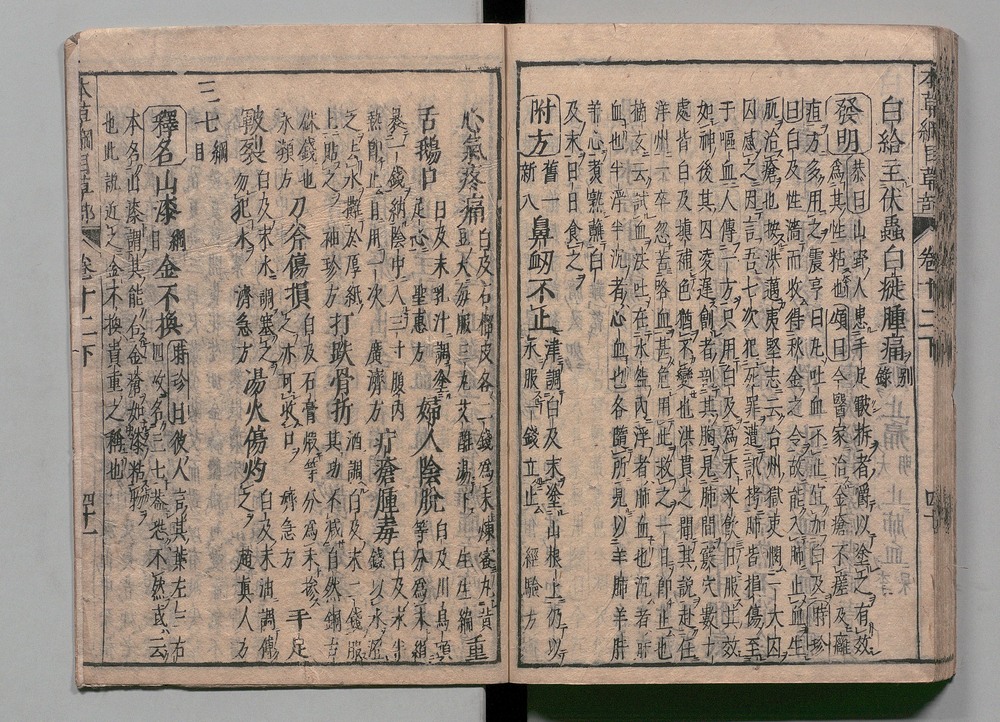 白給主伏蟲白㿉腫痛 別錄
發明 恭曰山野人患手足皸拆者嚼以塗之有效
爲其性粘也頌曰今醫家治金瘡不瘥及癰
疽方多用之震亨曰凡吐血不止宜加白及時珍
曰白及性濇而收得秋金之令故能入肺止血生
肌治瘡也按洪邁夷堅志云台州獄吏憫一大囚
囚感之因言吾七次犯死罪遭訊拷肺皆損傷至
于嘔血人傳一方只用白及爲末米飲日服其效
如神後其囚凌遲劊者剖其胸見肺間竅穴數十
處皆白及塡補色猶不變也洪貫之聞其說赴任
洋州一卒忽苦咯血甚危用此救之一日即止也
摘玄云試血法吐在水盌內浮者肺血也沉者肝
血也半浮半沉者心血也各隨所見以羊肺羊肝
羊心煮熟蘸白
及末日日食之
附方 舊一新八 鼻衂不止 津調白及末塗山根上仍以水服一錢立止 經驗方
心氣疼痛 白及石榴皮各一錢爲末煉蜜丸黃豆大每服三丸艾醋湯下生生編
重舌鵝口 白及末乳汁調塗足心聖惠方
婦人陰脫 白及川烏頭等分爲末絹裹一錢納陰中入三寸腹內熱即止日用一次廣濟方
疔瘡腫毒 白及末半錢以水澄之去水攤於厚紙上貼之袖珍方
打跌骨折 酒調白及末二錢服其功不減自然銅古銖錢也永類方
刀斧傷損 白及石膏煅等分爲末摻之亦可收口濟急方
手足皸裂 白及末水調塞之勿犯水濟急方
湯火傷灼 白及末油調傅之趙眞人方
三七 綱目
釋名 山漆 綱目 金不換 時珍曰彼人言其葉左三右四故名三七蓋恐不然或云
本名山漆謂其能合金瘡如漆粘物
也此說近之金不換貴重之稱也
本草綱目草部 卷十二下 四十
本草綱目草部 卷十二下 四十一